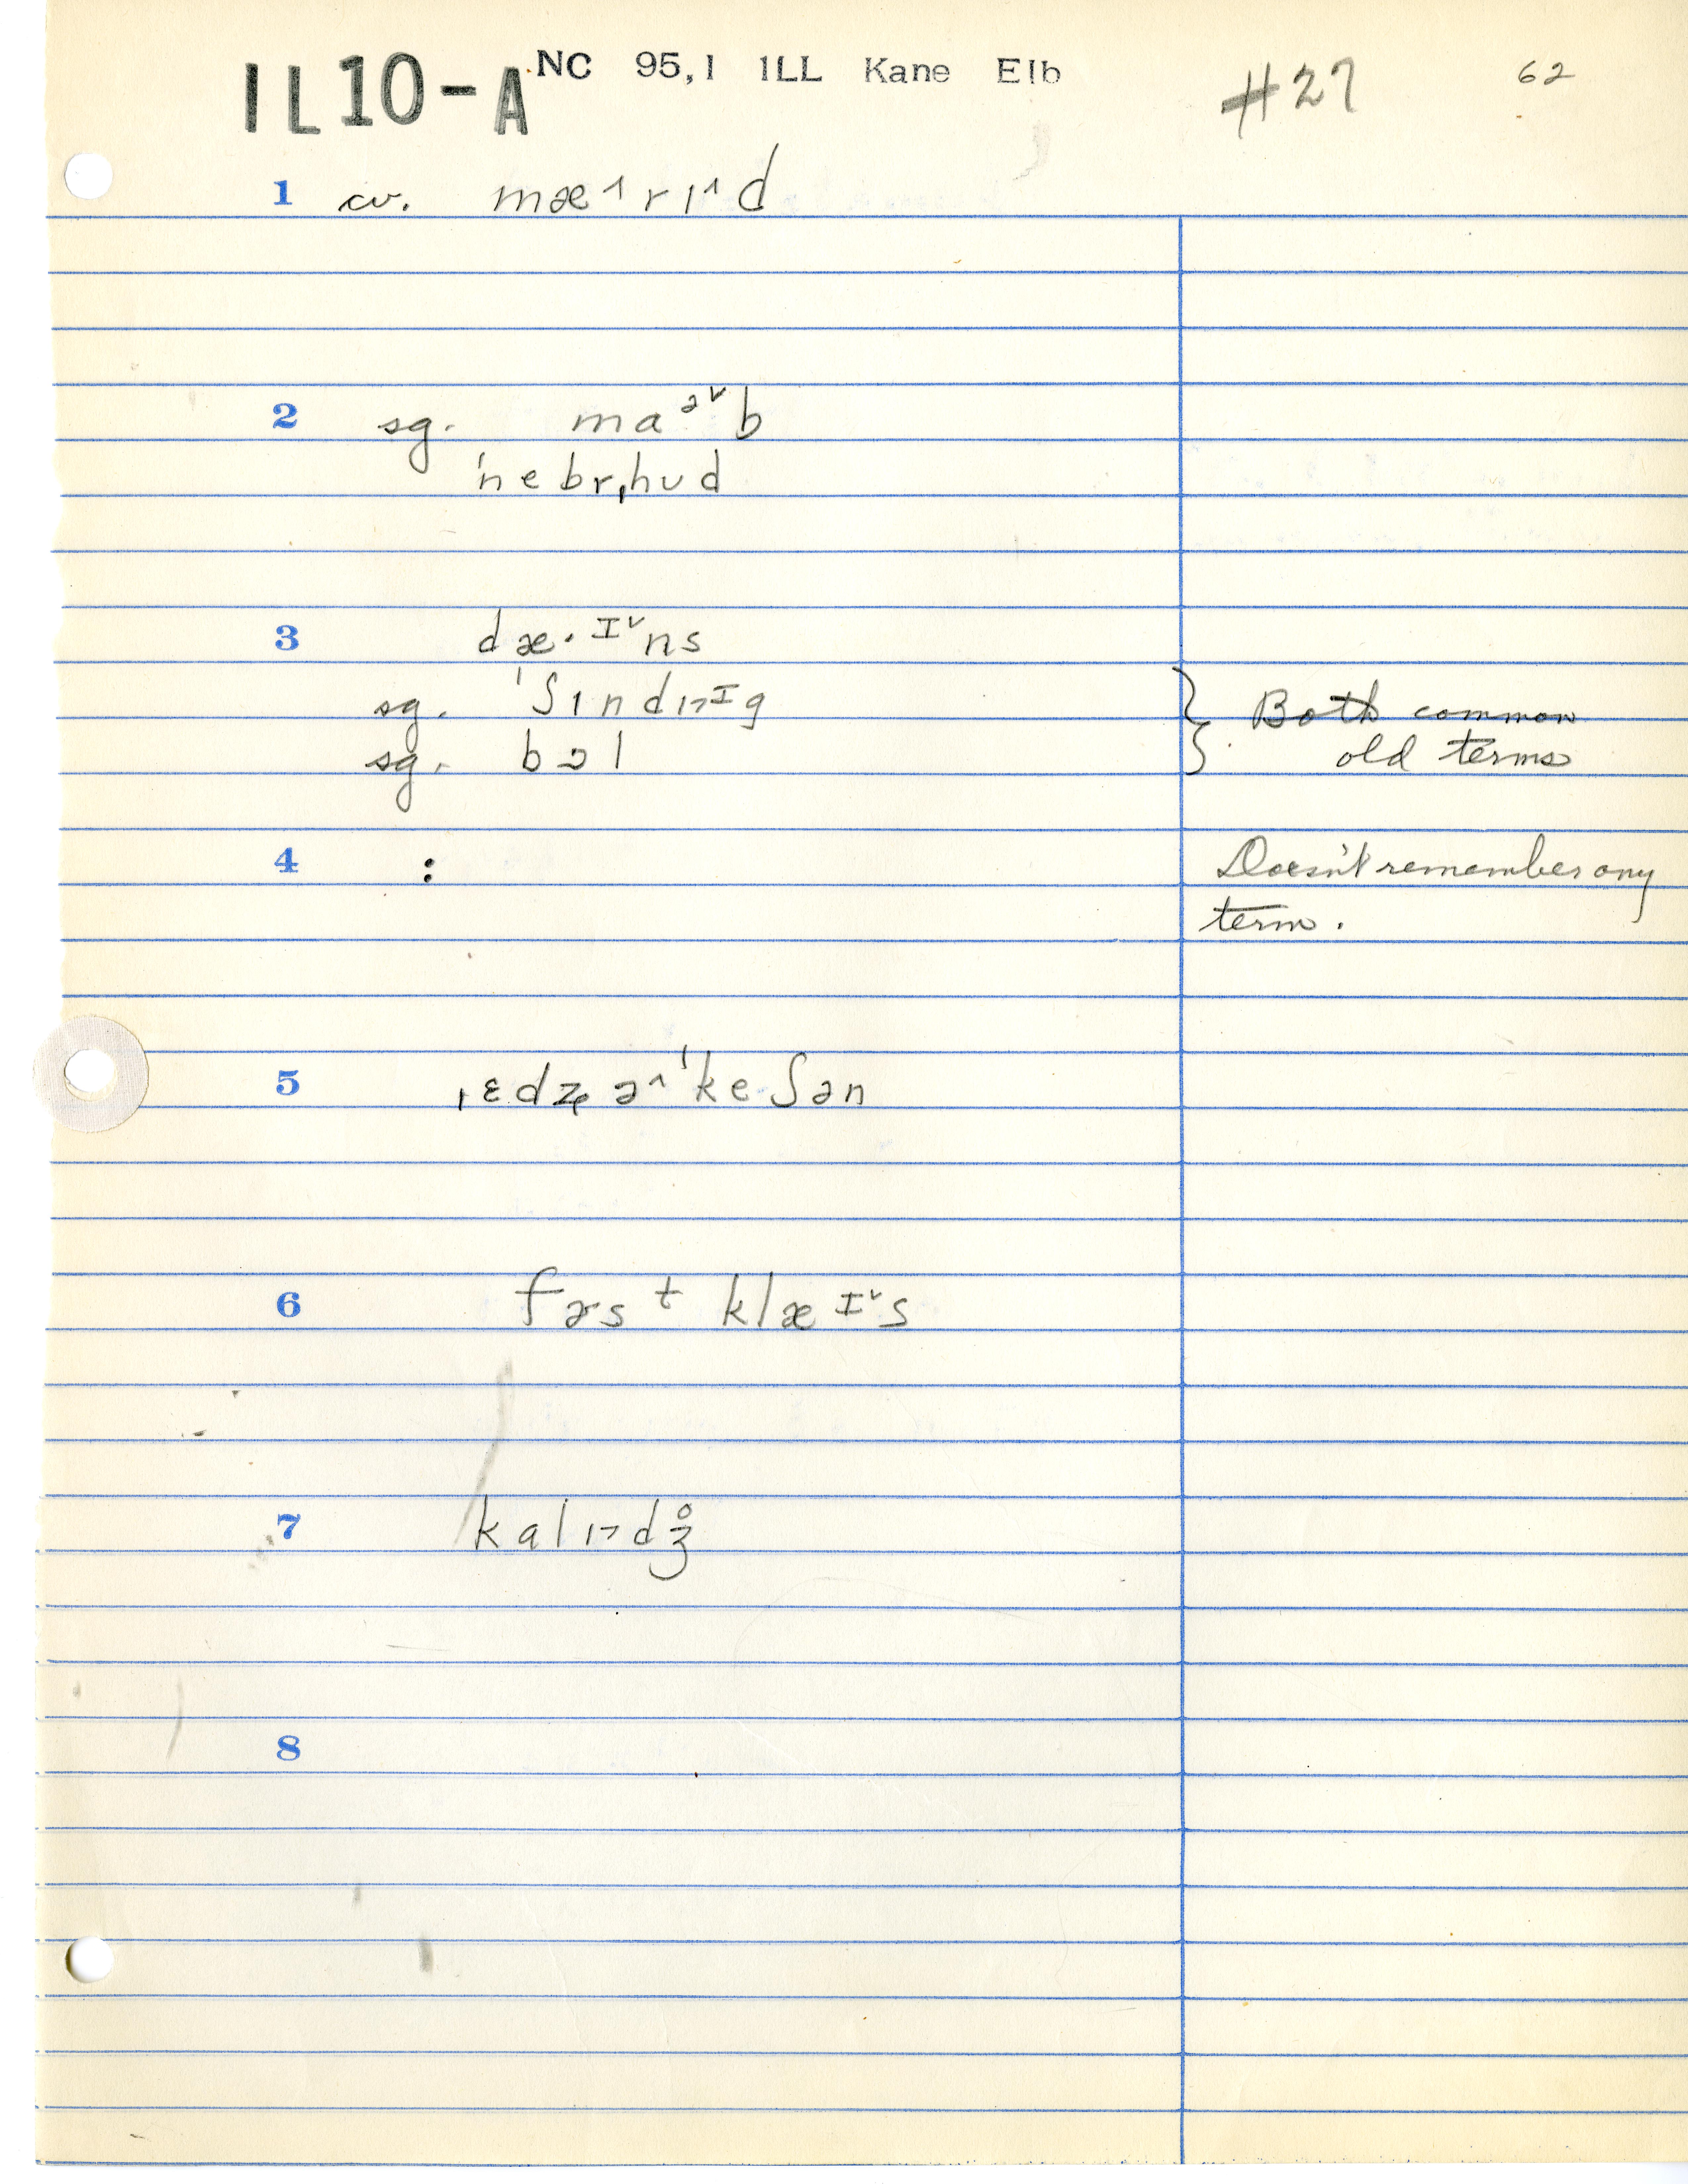 IL10-A NC 95,1 ILL Kane Elb #27 62
1 cv. mæ˄rɪ˄d
2 sg. maᵊ˅b
ˈnebrˌhʊd
3 dæ·ɪ˅ns
sg. ˈʃɪndɪ˃ɪg
sg. bɔl
} Both common
} old terms
4 : Doesn't remember any
term.
5 ˌɛdʒə˄ˈkeʃən
6 fɚst klæɪ˅s
7 kalɪ˃dʒ̊
8